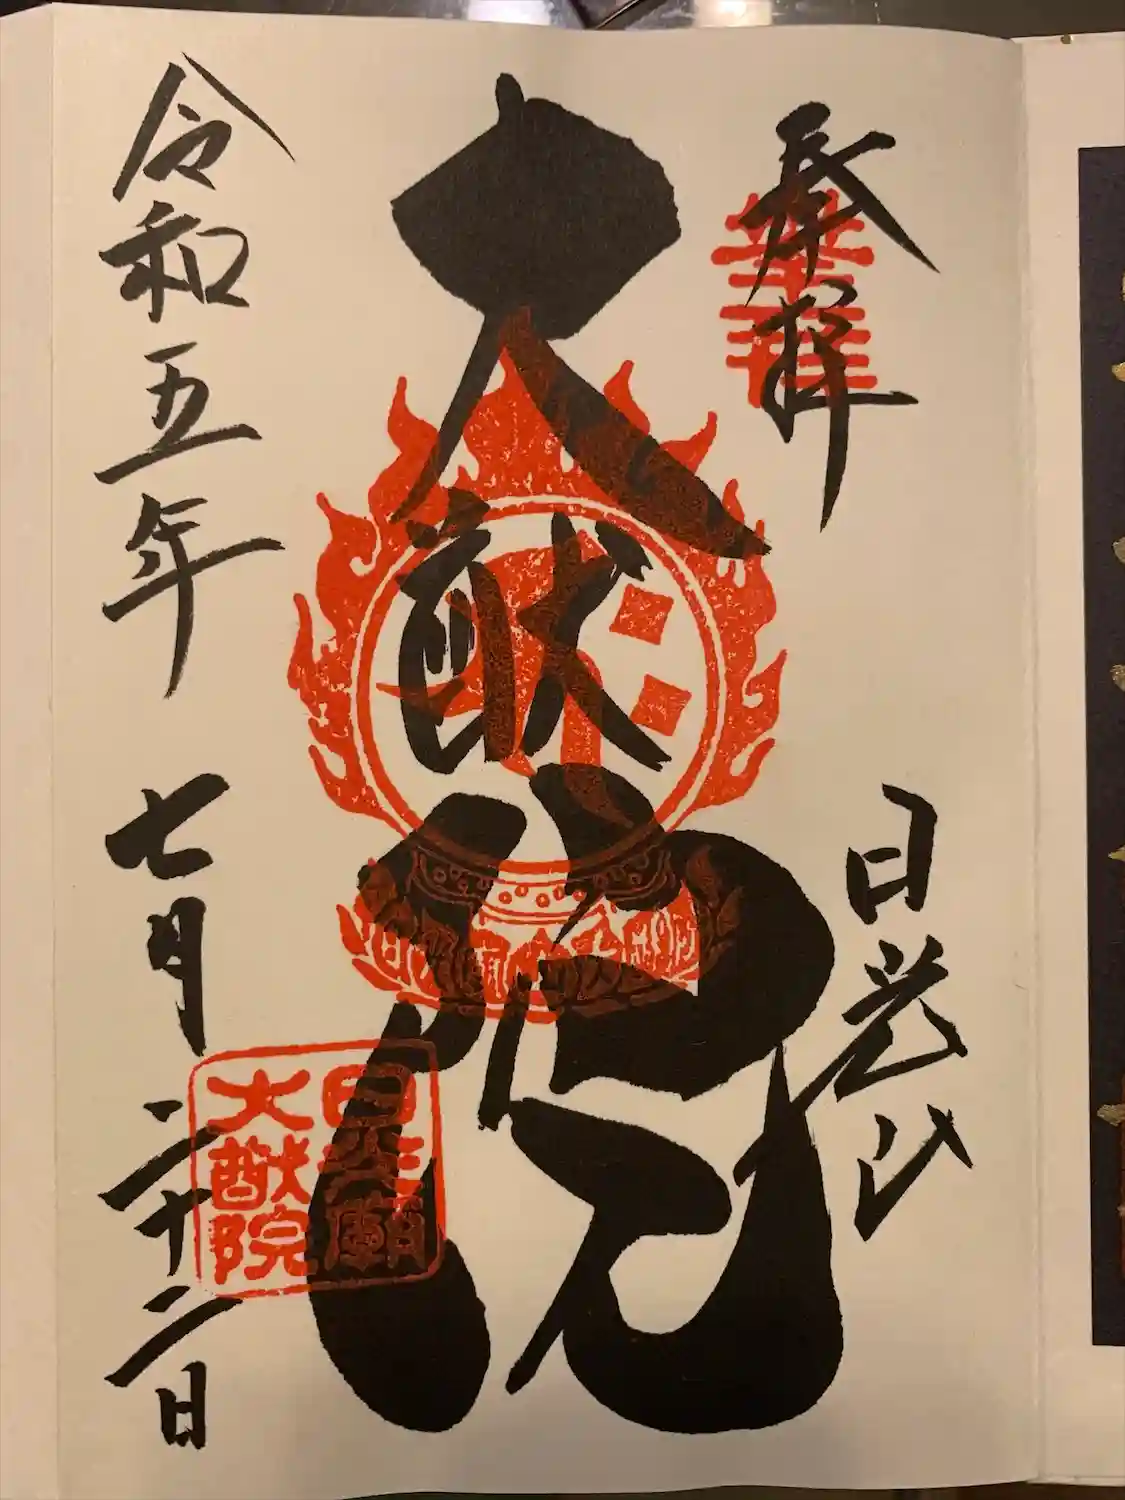 奉拝
日光山
大猷院
日光廟
大猷院
令和五年 七月二十二日